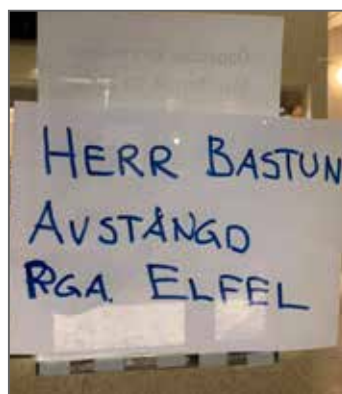 HERR BASTUN
AVSTÄNGD
RGA. ELFEL